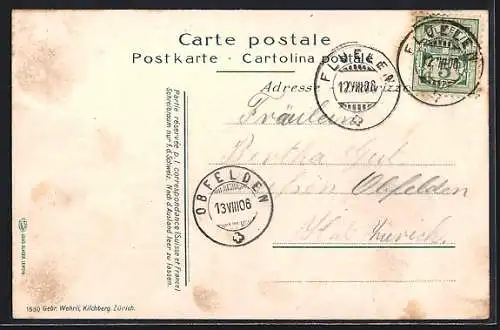 Carte postale
Postkarte - Cartolina postale
Adresse
FLUELEN
12.VIII.06
FLUELEN
12.VIII.06
5
Fräulein
Bertha
Obfelden
Zürich
OBFELDEN
13.VIII.06
Partie réservée p. l. correspondance (Suisse et France)
Schreibraum nur f. d. Schweiz. Nach d. Ausland leer zu lassen.
1550 Gebr. Wehrli, Kilchberg, Zürich.